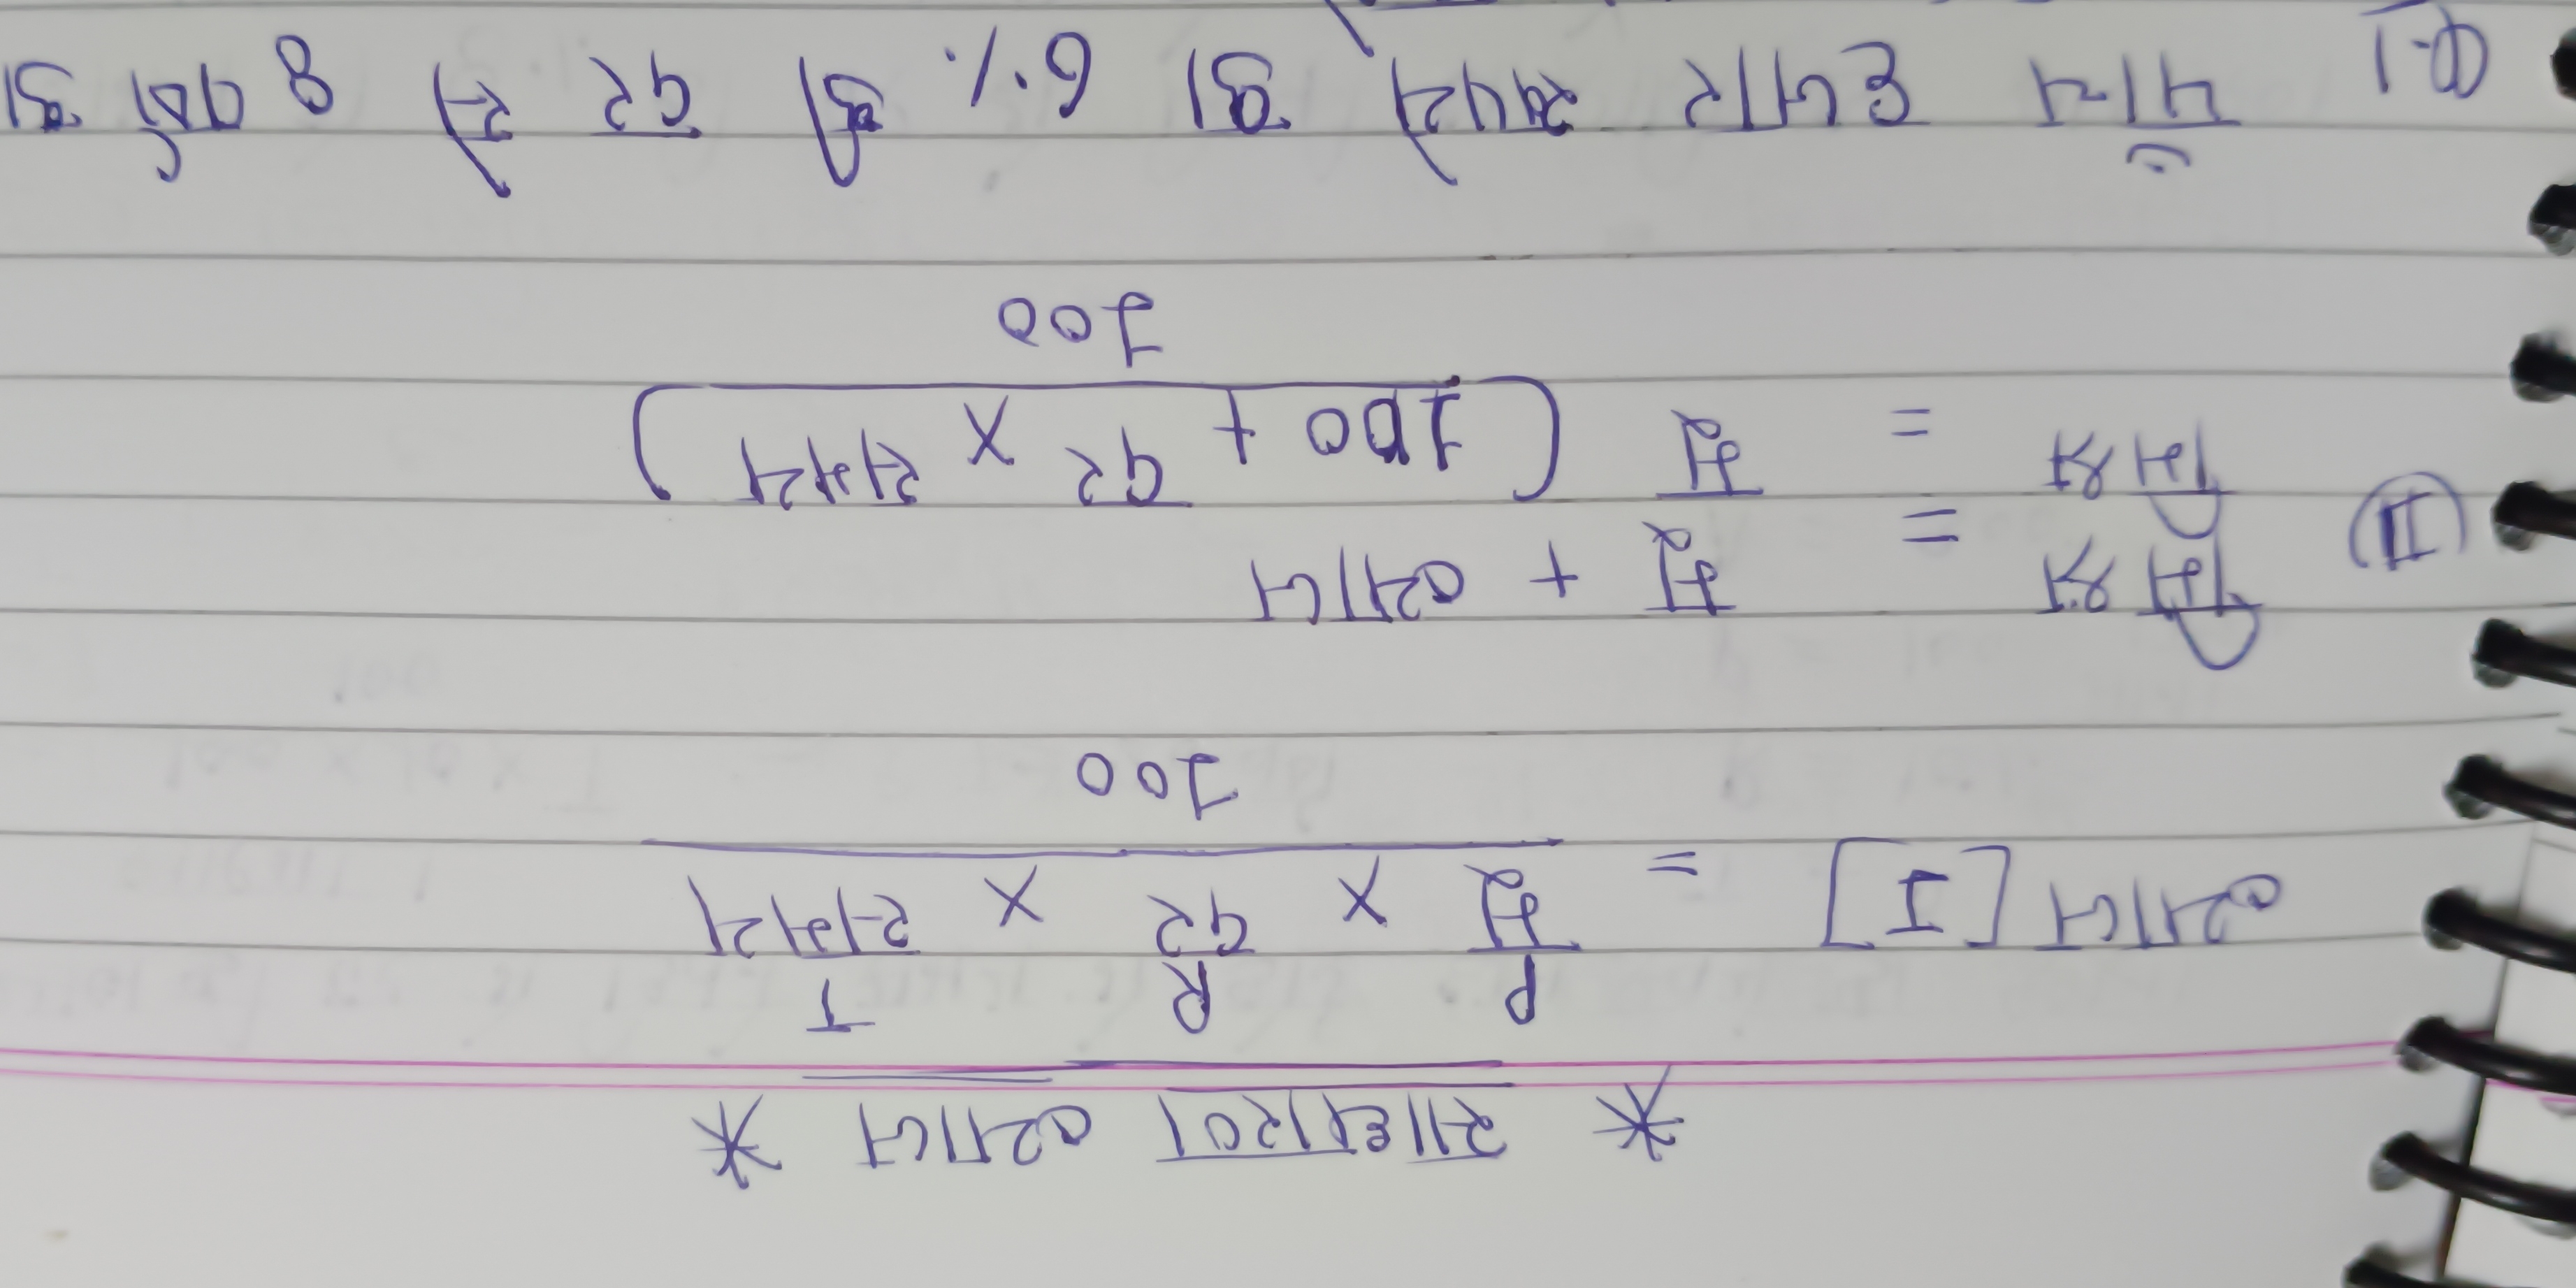 * साधारण ब्याज *
P R T
ब्याज [I] = मू × दर × समय
100
II मिश्र = मू + ब्याज
मिश्र = मू (100 + दर × समय)
100
Q.1 पांच हजार रूपये का 6% की दर से 8 वर्ष का